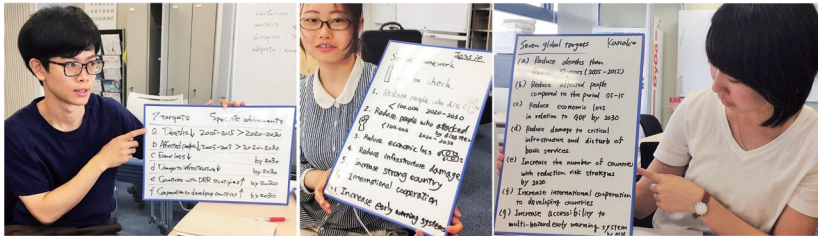 7 targets Specific achievements
a Deaths↓ 2005-2015 > 2020-2030
b Affected people↓ 2005-2015 > 2020-2030
c Economic loss↓ by 2030
d Damage to infrastructure↓ by 2030
e Countries with DRR strategies↑ by 2020
f Cooperation to developing countries↑ by 2030
Jessie
to check.
1. Reduce people who die
<100.000 2020-2030
2. Reduce people who attacked
by disaster
<100.000 2020-2030
3. Reduce economic loss
4. Reduce infrastructure damage
5. Increase strong country
6. International cooperation
7. Increase early warning systems
Seven global targets Kanako
(a) Reduce deaths than
years (2005-2015)
(b) Reduce affected people
compared to the period 05-15
(c) Reduce economic loss
in relation to GDP by 2030
(d) Reduce damage to critical
infrastructure and disturb of
basic services.
(e) Increase the number of countries
with reduction risk strategies
by 2020
(f) Increase international cooperation
to developing countries
(g) Increase accessibility to
multi-hazard early warning system
by 2030